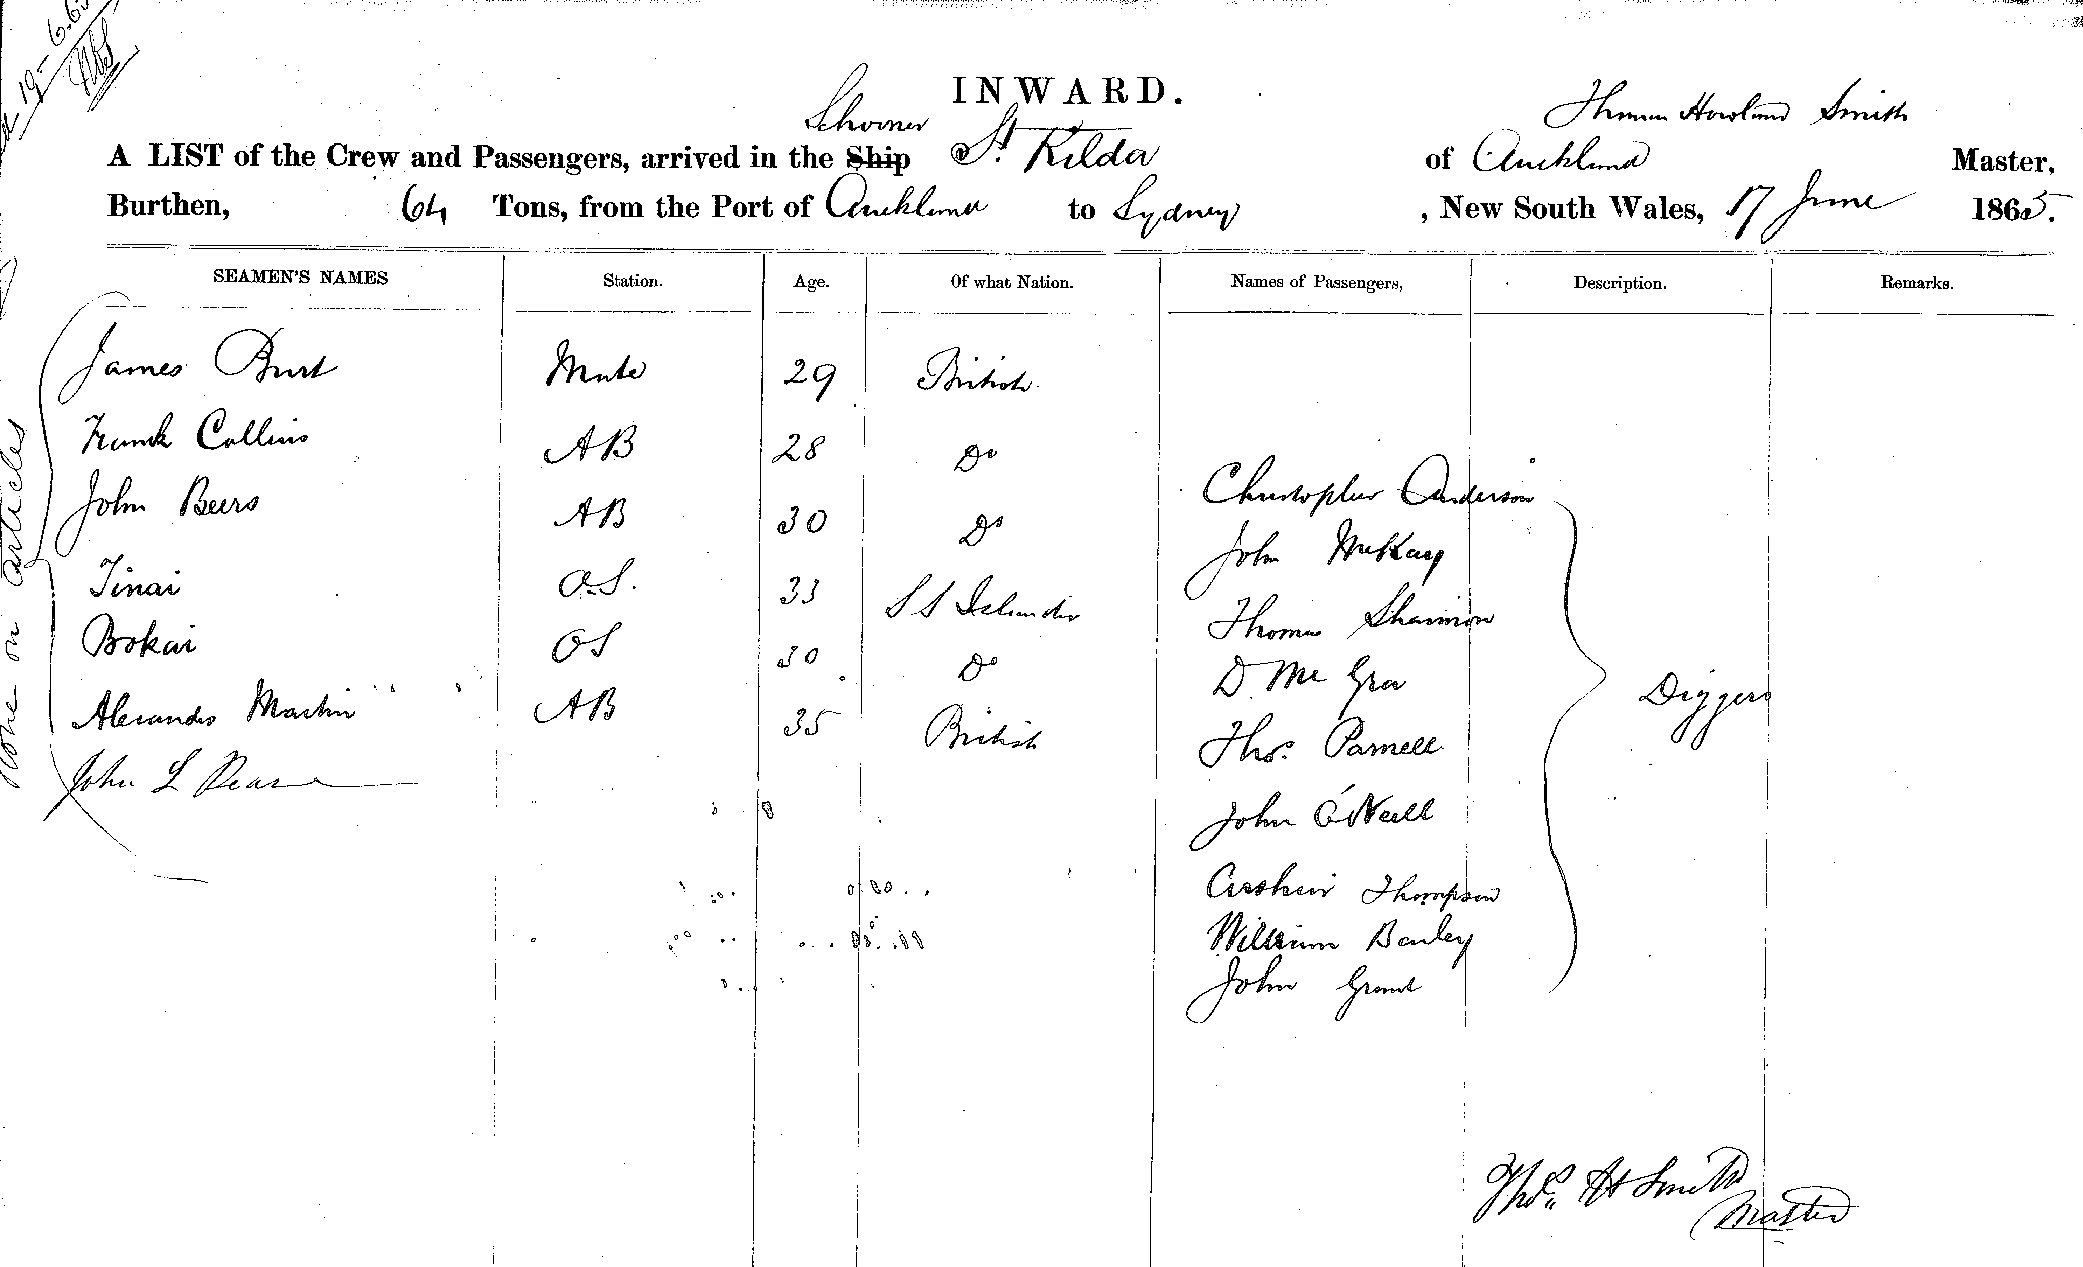 19-6.65
INWARD.
Thomas Howland Smith
Schooner
A LIST of the Crew and Passengers, arrived in the Ship St. Kilda of Auckland Master,
Burthen, 64 Tons, from the Port of Auckland to Sydney, New South Wales, 17 June 1865.
SEAMEN'S NAMES Station. Age. Of what Nation. Names of Passengers, Description. Remarks.
James Burt Mate 29 British
Frank Collins AB 28 Do
Christopher Anderson
John Beers AB 30 Do
John McKay
Tinai O.S. 33 S S Islander
Thomas Shannon
Bokai OS 30 Do
D. Mc Gra
Diggers
Alexander Martin AB 35 British
Thos. Parnell
John L
John O'Neill
Thompson
William Bailey
John Grant
None on Articles
Thos. H Smith
Master